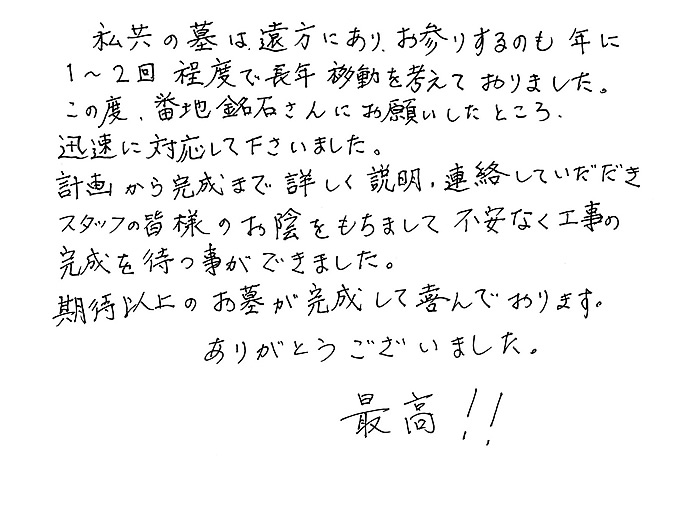 私共の墓は、遠方にあり、お参りするのも 年に
1～2回 程度で長年 移動を考えて おりました。
この度、番地銘石さんに お願いしたところ、
迅速に対応して下さいました。
計画から完成まで 詳しく 説明、連絡していだだき
スタッフの皆様のお陰をもちまして 不安なく工事の
完成を待つ事ができました。
期待以上の お墓が完成して喜んでおります。
ありがとうございました。
最高!!